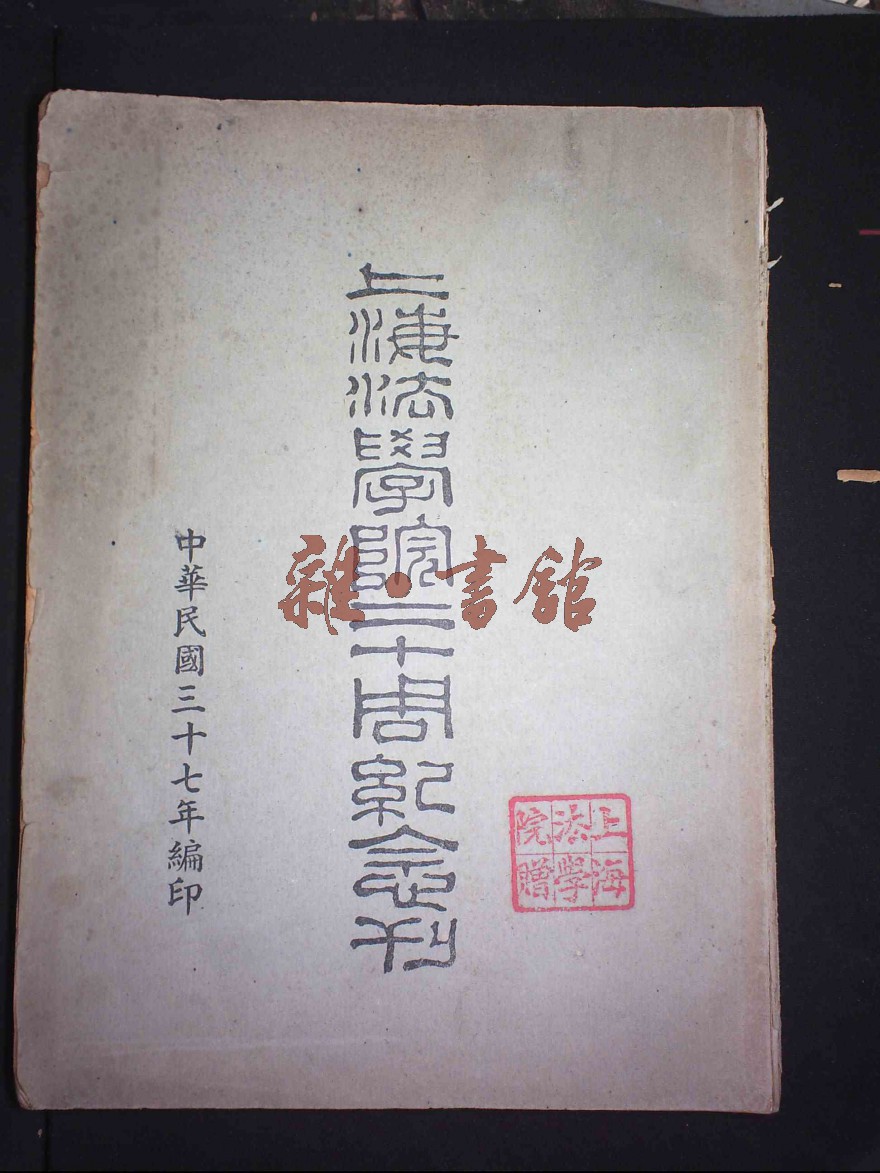 上海法學院二十周紀念刊
中華民國三十七年編印
上海
法學
院贈
雜·書館